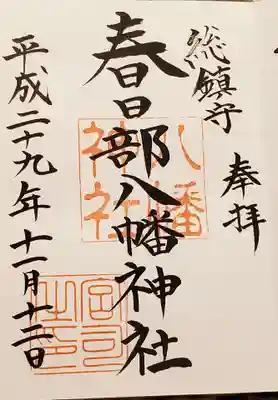 奉拝
総鎮守
春日部八幡神社
八幡
神社
平成二十九年十一月十二日
宮司之印